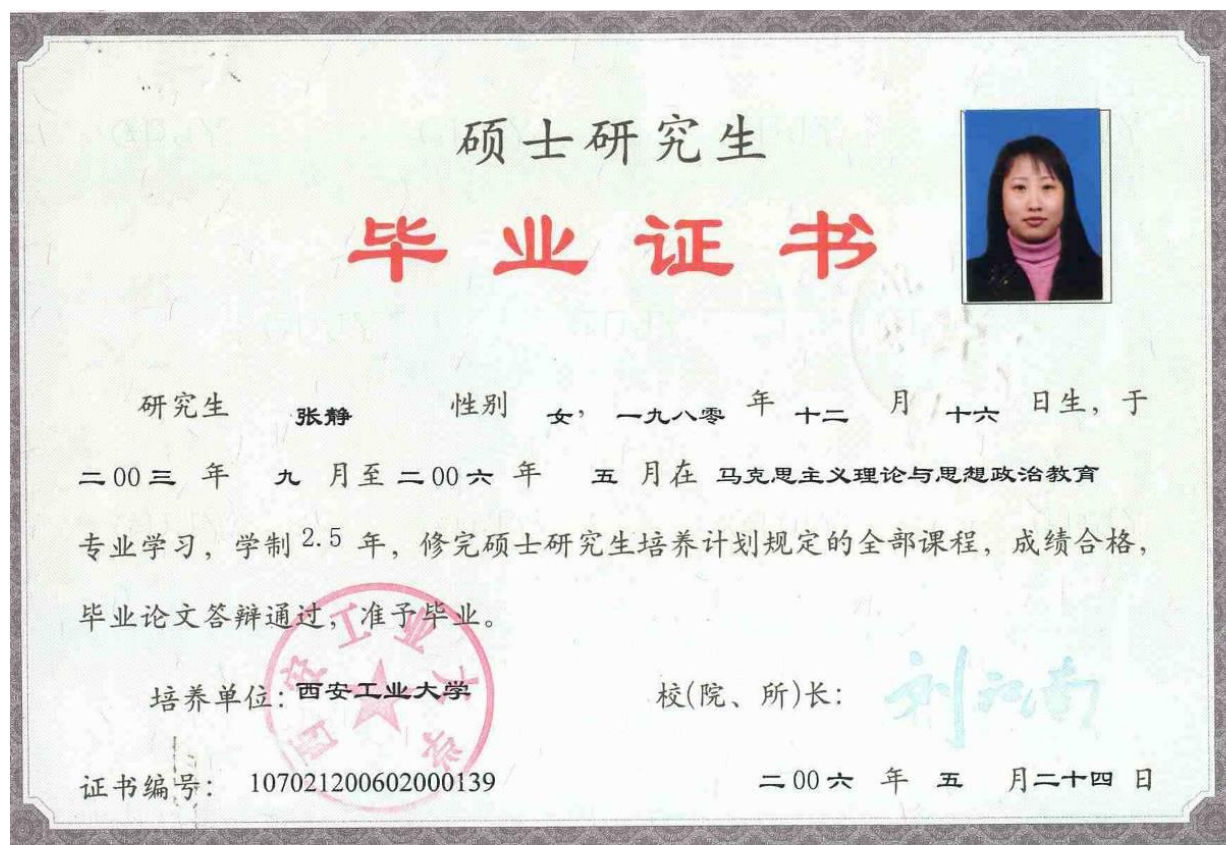 硕士研究生
毕业证书
研究生 张静 性别 女， 一九八零 年 十二 月 十六 日生，于
二00三 年 九 月至 二00六 年 五 月在 马克思主义理论与思想政治教育
专业学习，学制 2.5 年，修完硕士研究生培养计划规定的全部课程，成绩合格，
毕业论文答辩通过，准予毕业。
培养单位：西安工业大学 校(院、所)长：
西安工业大学
证书编号： 107021200602000139 二00六 年 五 月二十四 日